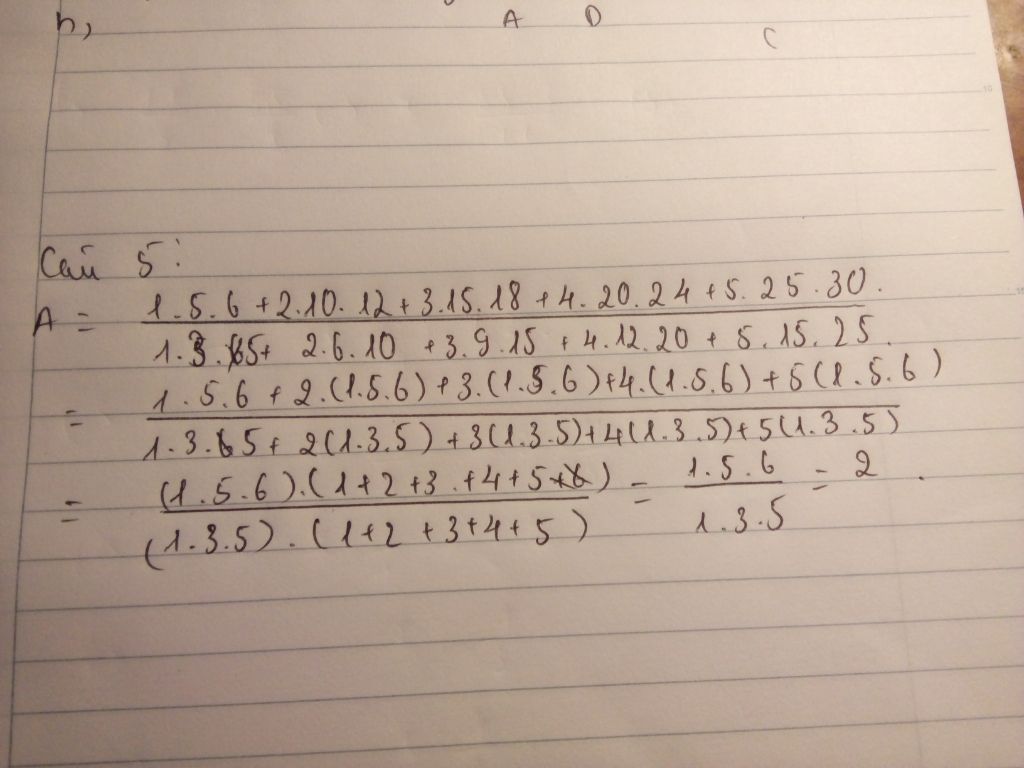 h,
A D
C
Câu 5:
A = (1.5.6 + 2.10.12 + 3.15.18 + 4.20.24 + 5.25.30.) / (1.3.5 + 2.6.10 + 3.9.15 + 4.12.20 + 5.15.25.)
= (1.5.6 + 2.(1.5.6) + 3.(1.5.6) + 4.(1.5.6) + 5(1.5.6)) / (1.3.5 + 2(1.3.5) + 3(1.3.5) + 4(1.3.5) + 5(1.3.5))
= ((1.5.6).(1+2+3.+4+5)) / ((1.3.5).(1+2+3+4+5)) = (1.5.6) / (1.3.5) = 2.